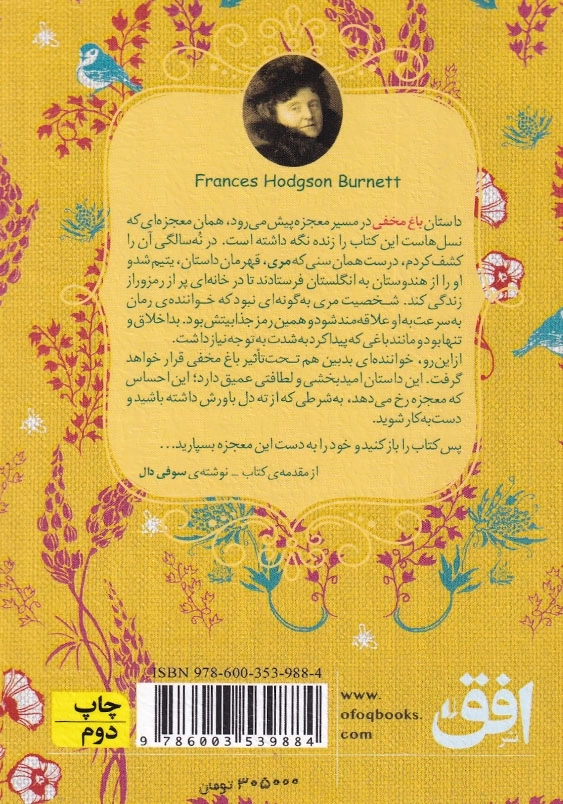 Frances Hodgson Burnett
داستان باغ مخفی در مسیر معجزه پیش می‌رود، همان معجزه‌ای که
نسل‌هاست این کتاب را زنده نگه داشته است. در نُه‌سالگی آن را
کشف کردم، درست همان سنی که مری، قهرمان داستان، یتیم شد و
او را از هندوستان به انگلستان فرستادند تا در خانه‌ای پر از رمزوراز
زندگی کند. شخصیت مری به‌گونه‌ای نبود که خواننده‌ی رمان
به‌سرعت به او علاقه‌مند شود و همین رمز جذابیتش بود. بداخلاق و
تنها بود و مانند باغی که پیدا کرد به‌شدت به توجه نیاز داشت.
ازاین‌رو، خواننده‌ای بدبین هم تحت‌تأثیر باغ مخفی قرار خواهد
گرفت. این داستان امیدبخشی و لطافتی عمیق دارد؛ این احساس
که معجزه رخ می‌دهد، به‌شرطی که از ته دل باورش داشته باشید و
دست‌به‌کار شوید.
پس کتاب را باز کنید و خود را به دست این معجزه بسپارید...
از مقدمه‌ی کتاب – نوشته‌ی سوفی دال
ISBN 978-600-353-988-4
9 786003 539884
چاپ
دوم
www.
ofoqbooks.
com
نشر افق
۳۰۵۰۰۰ تومان